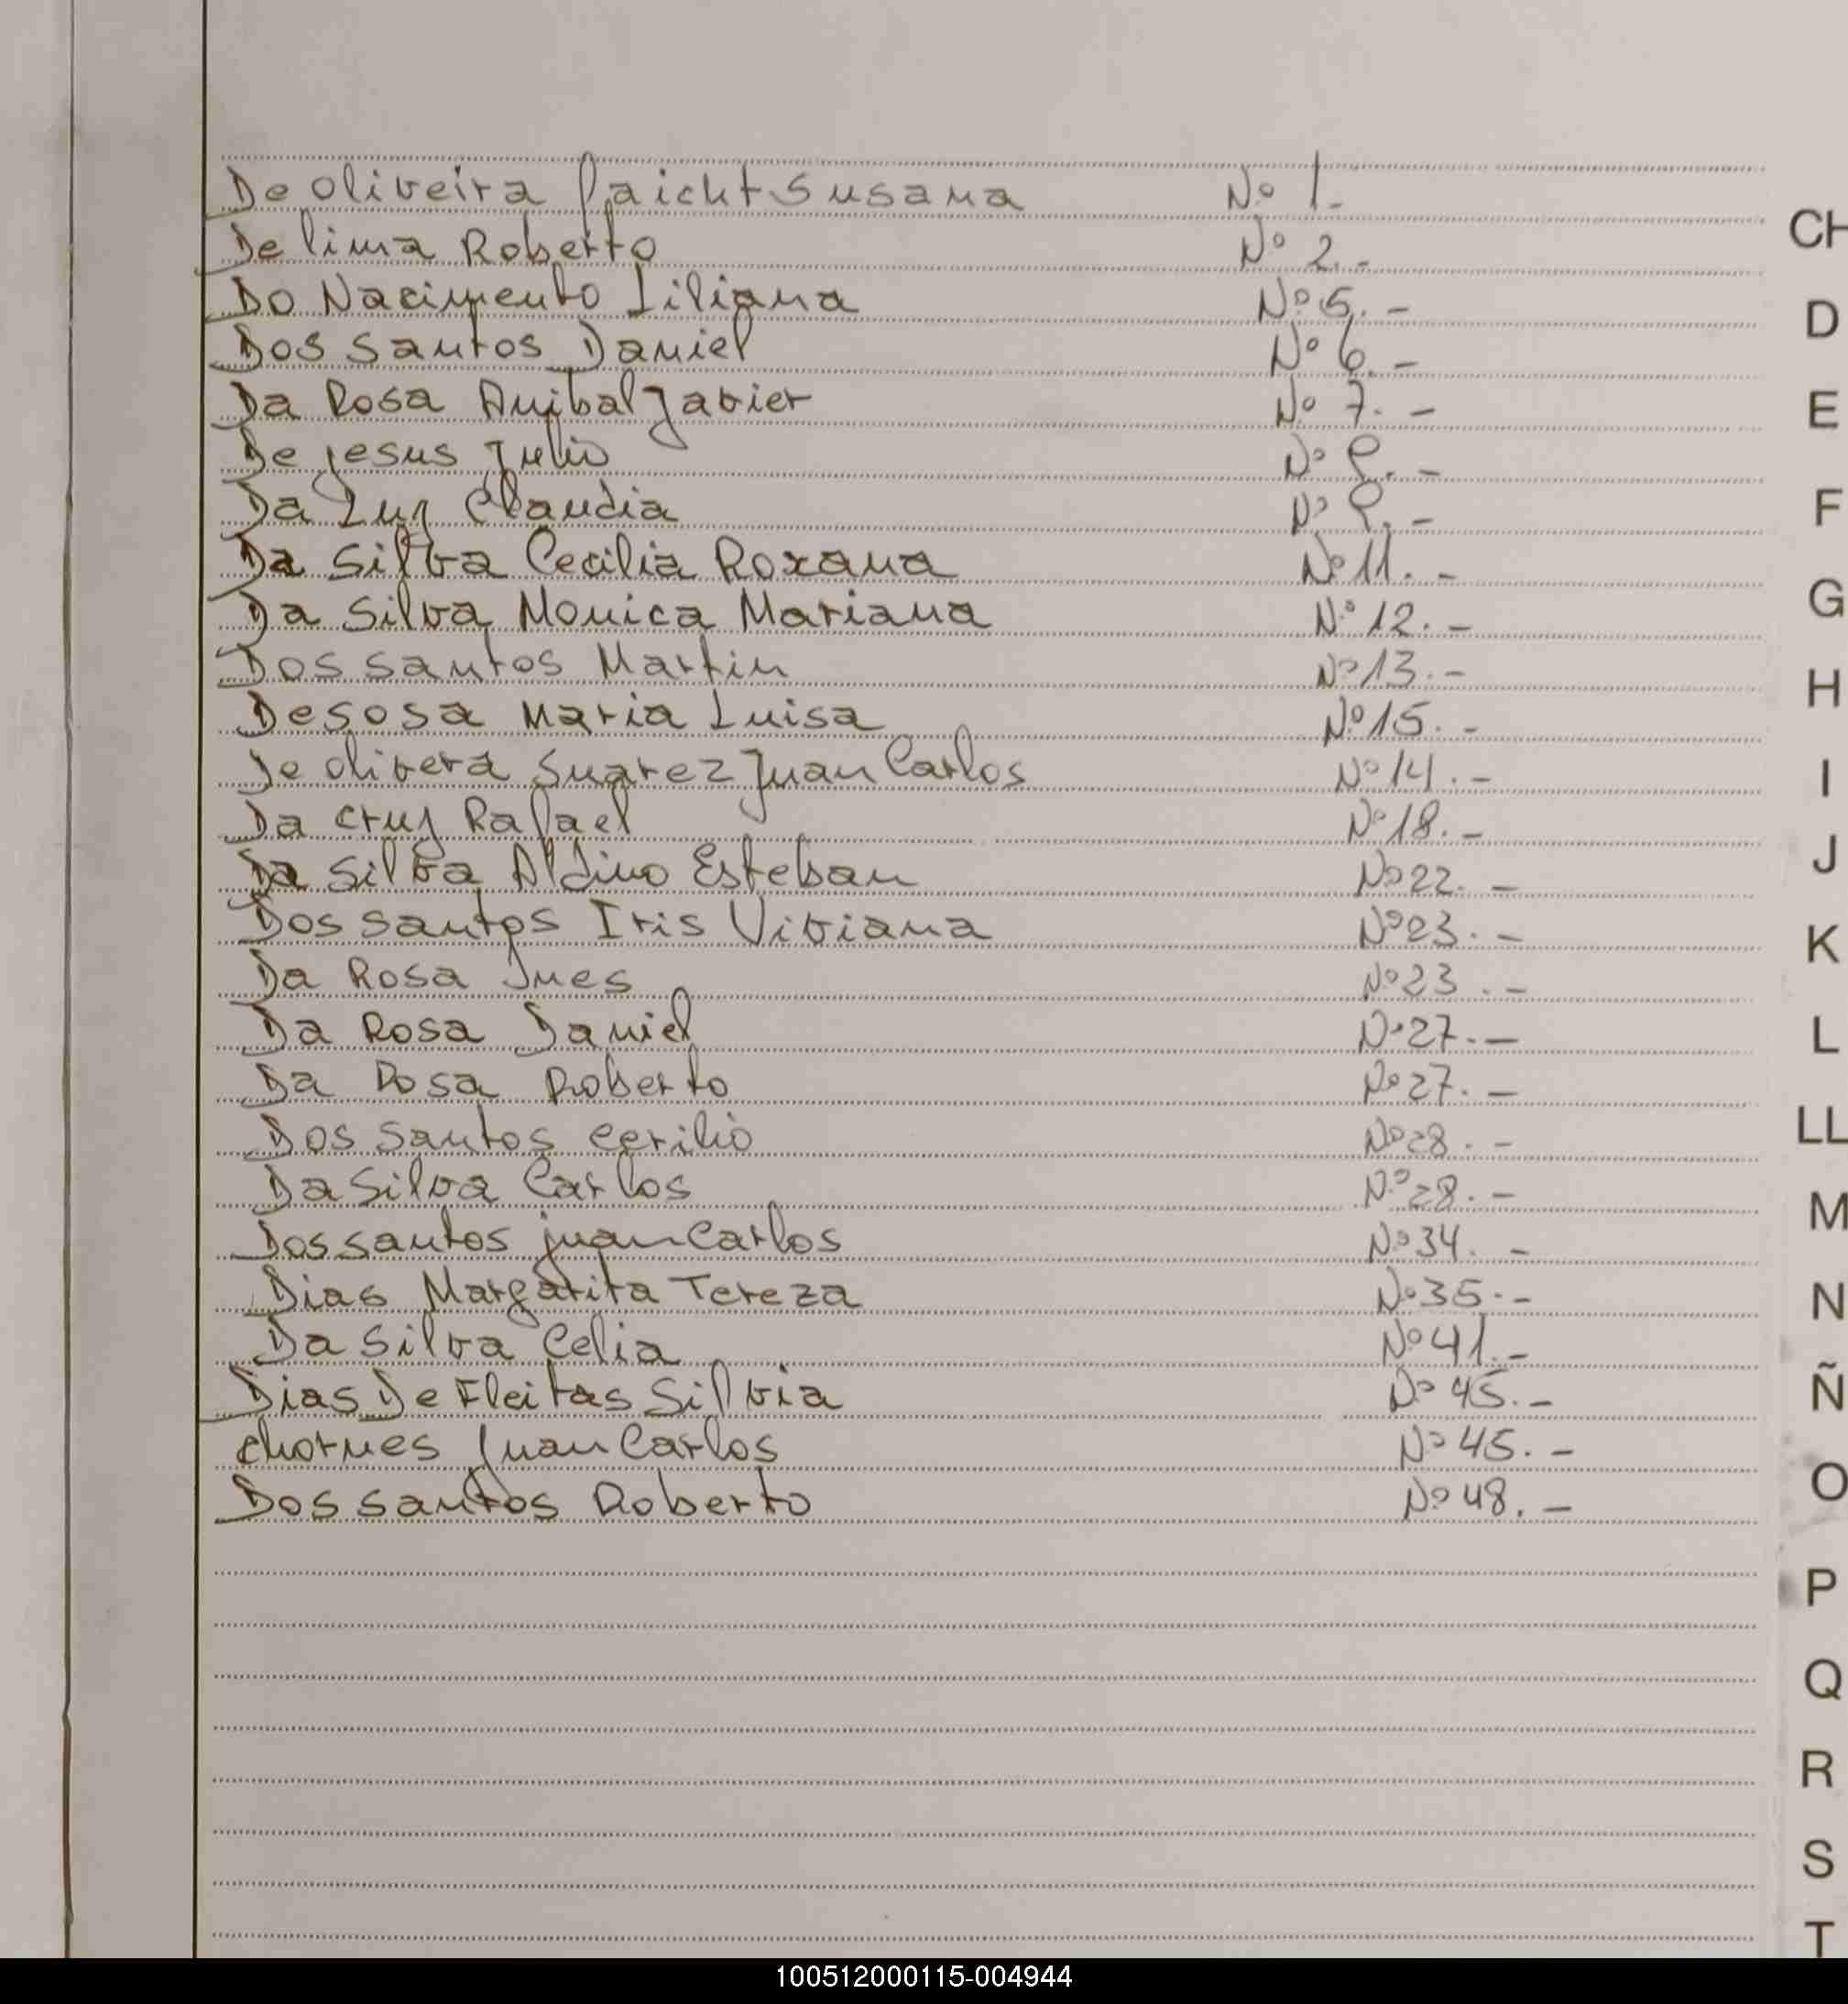 De Oliveira Paicht Susana Nº 1.-
De lima Roberto Nº 2.-
Do Nacimento Liliana Nº 5.-
Dos Santos Daniel Nº 6.-
Da Rosa Anibal Javier Nº 7.-
De jesus Julio Nº
Da Luz Claudia Nº
Da Silva Cecilia Roxana Nº 11.-
Da Silva Monica Mariana Nº 12.-
Dos santos Martin Nº 13.-
De sosa Maria Luisa Nº 15.-
De olivera Suarez Juan Carlos Nº 14.-
Da cruz Rafael Nº 18.-
Da Silva Aldino Esteban Nº 22.-
Dos santos Iris Viviana Nº 23.-
Da Rosa Ines Nº 23.-
Da Rosa Daniel Nº 27.-
Da Rosa Roberto Nº 27.-
Dos Santos Cerilio Nº 28.-
Da Silva Carlos Nº 28.-
Dos santos juan Carlos Nº 34.-
Dias Margarita Tereza Nº 35.-
Da Silva Celia Nº 41.-
Dias De Fleitas Silvia Nº 45.-
Chornes Juan Carlos Nº 45.-
Dos santos Roberto Nº 48.-
CH
D
E
F
G
H
I
J
K
L
LL
M
N
Ñ
O
P
Q
R
S
T
100512000115-004944